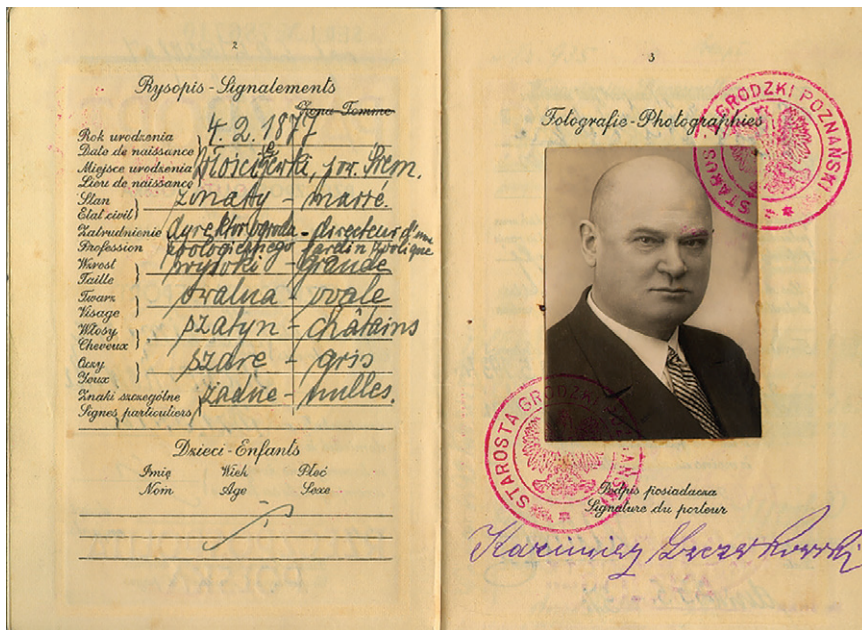 2
Rysopis - Signalements
Żona - Femme
Rok urodzenia
Date de naissance
4. 2. 1877
Miejsce urodzenia
Lieu de naissance
Włościejewki, pow. Śrem.
Stan
Etat civil
żonaty - marié.
Zatrudnienie
Profession
dyrektor ogrodu - directeur d'un
zoologicznego jardin zoologique
Wzrost
Taille
wysoki - grande
Twarz
Visage
owalna - ovale
Włosy
Cheveux
szatyn - châtains
Oczy
Yeux
szare - gris
Znaki szczególne
Signes particuliers
żadne - nulles.
Dzieci - Enfants
Imię Wiek Płeć
Nom Age Sexe
3
Fotografie - Photographies
STAROSTA GRODZKI POZNAŃSKI
STAROSTA GRODZKI POZNAŃSKI
Podpis posiadacza
Signature du porteur
Kazimierz Szczerkowski